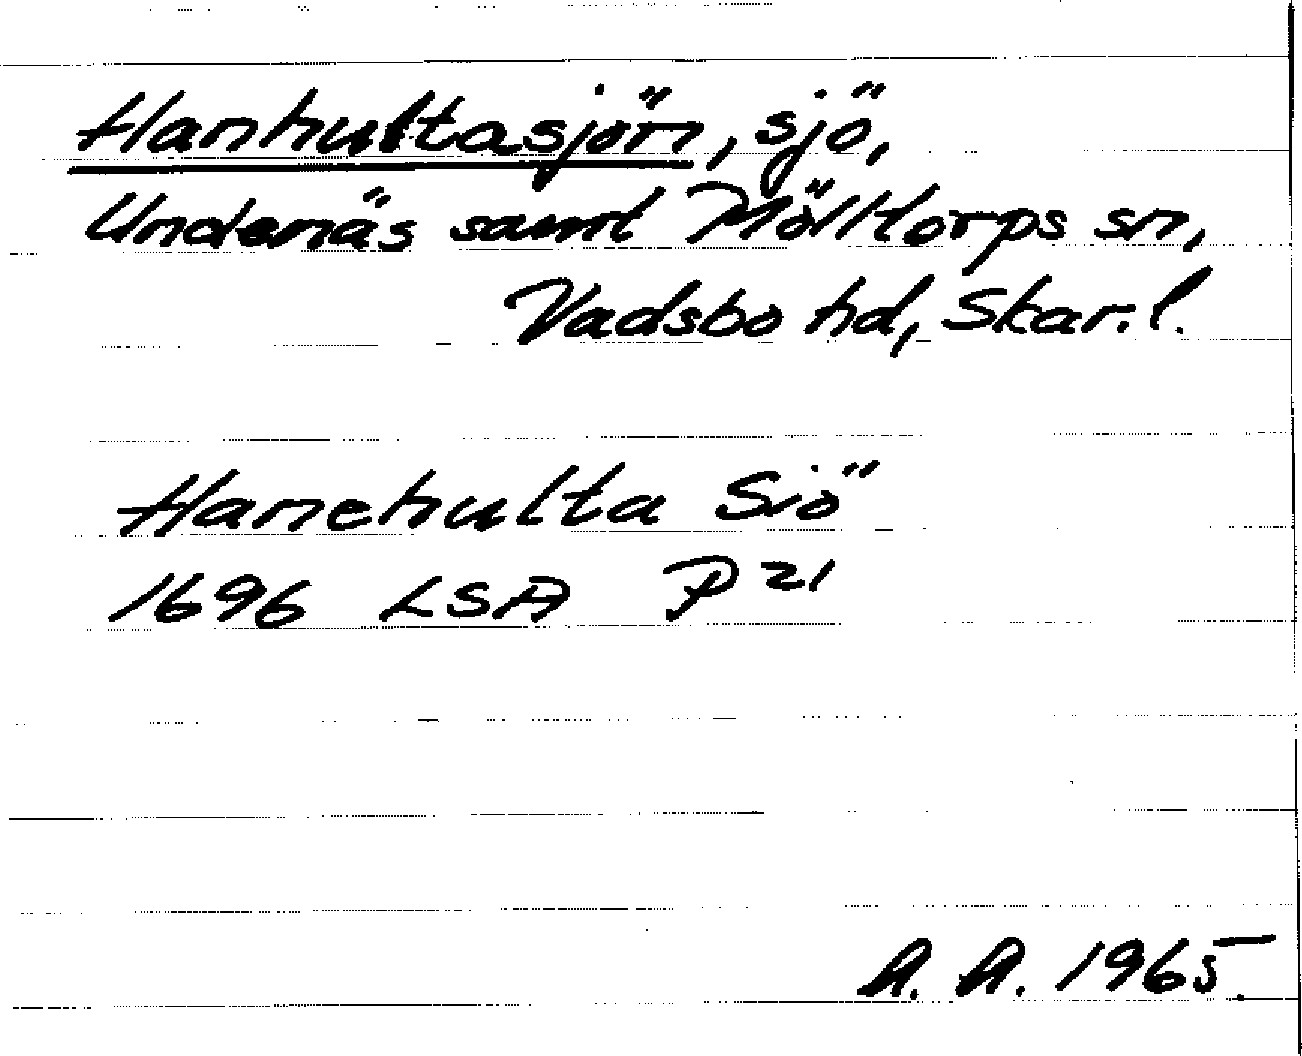 Hanhultasjön, sjö,
Undenäs samt Mölltorps sn,
Vadsbo hd, Skar. l.
Hanehulta Siö
1696 LSA P 21
A. A. 1965.